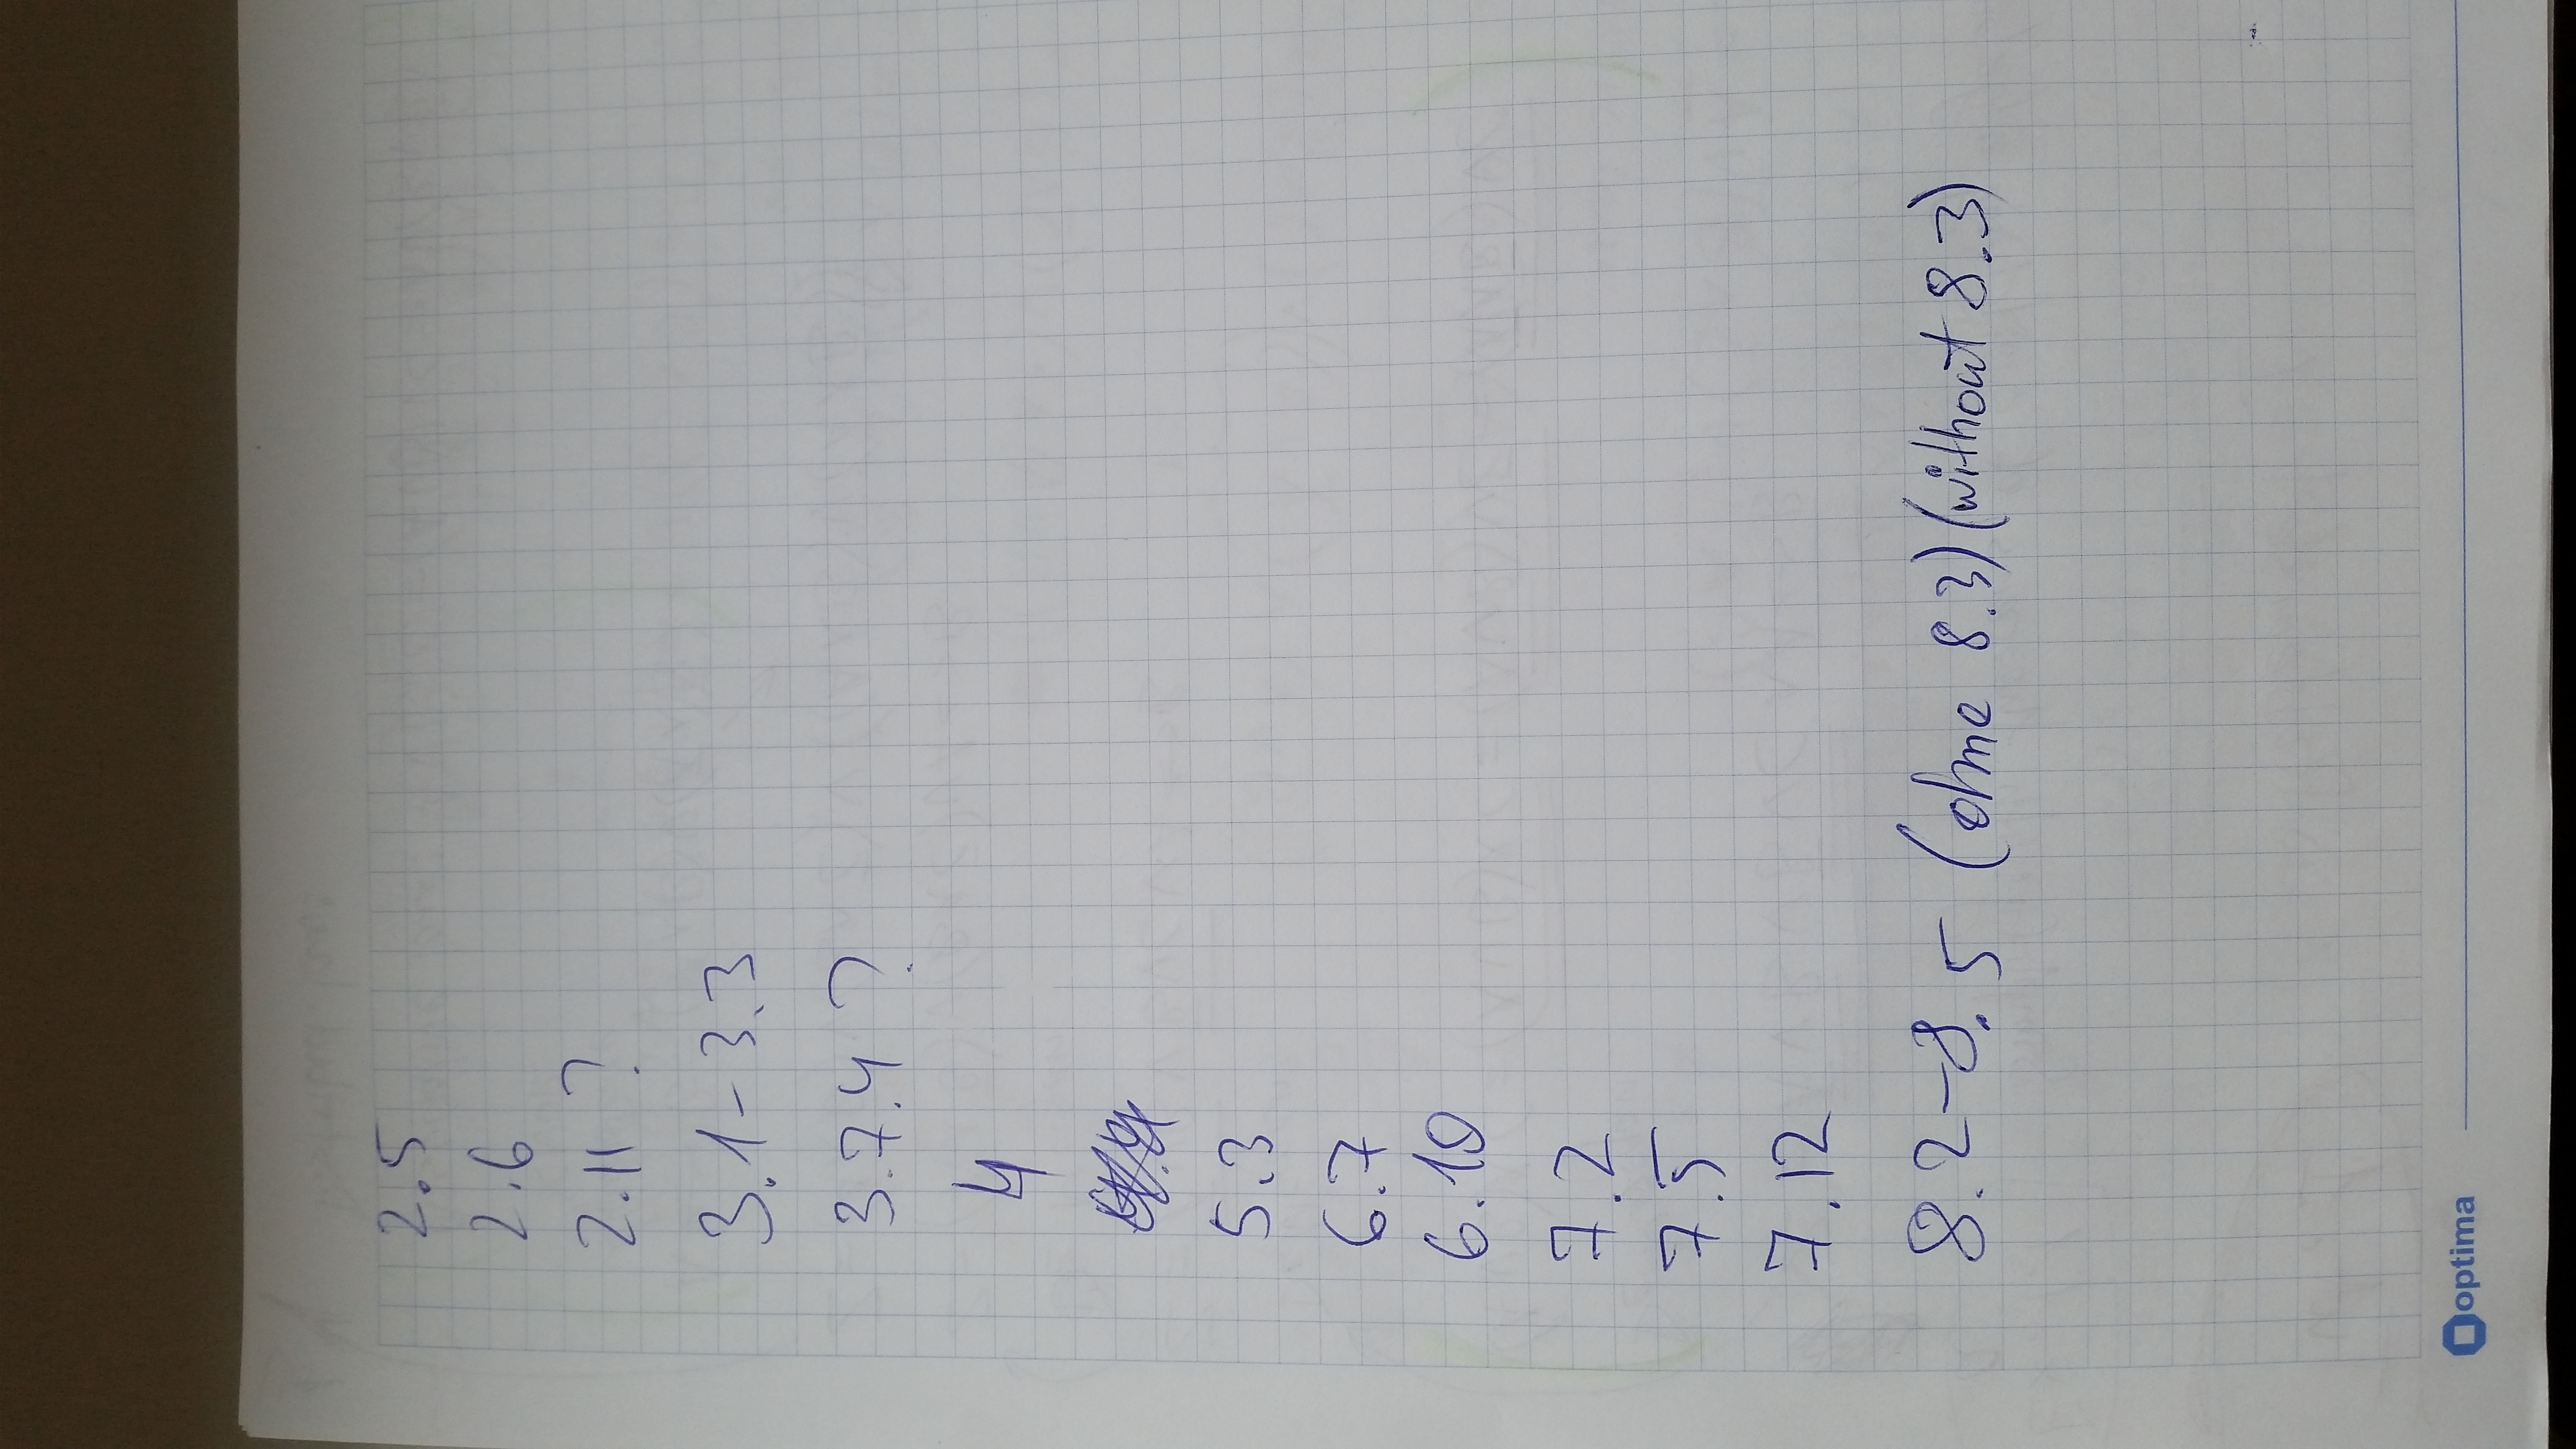 2.5
2.6
2.11 ?
3.1-3.3
3.7.4 ?
4
5.3
6.7
6.10
7.2
7.5
7.12
8.2-8.5 (ohne 8.3) (without 8.3)
optima